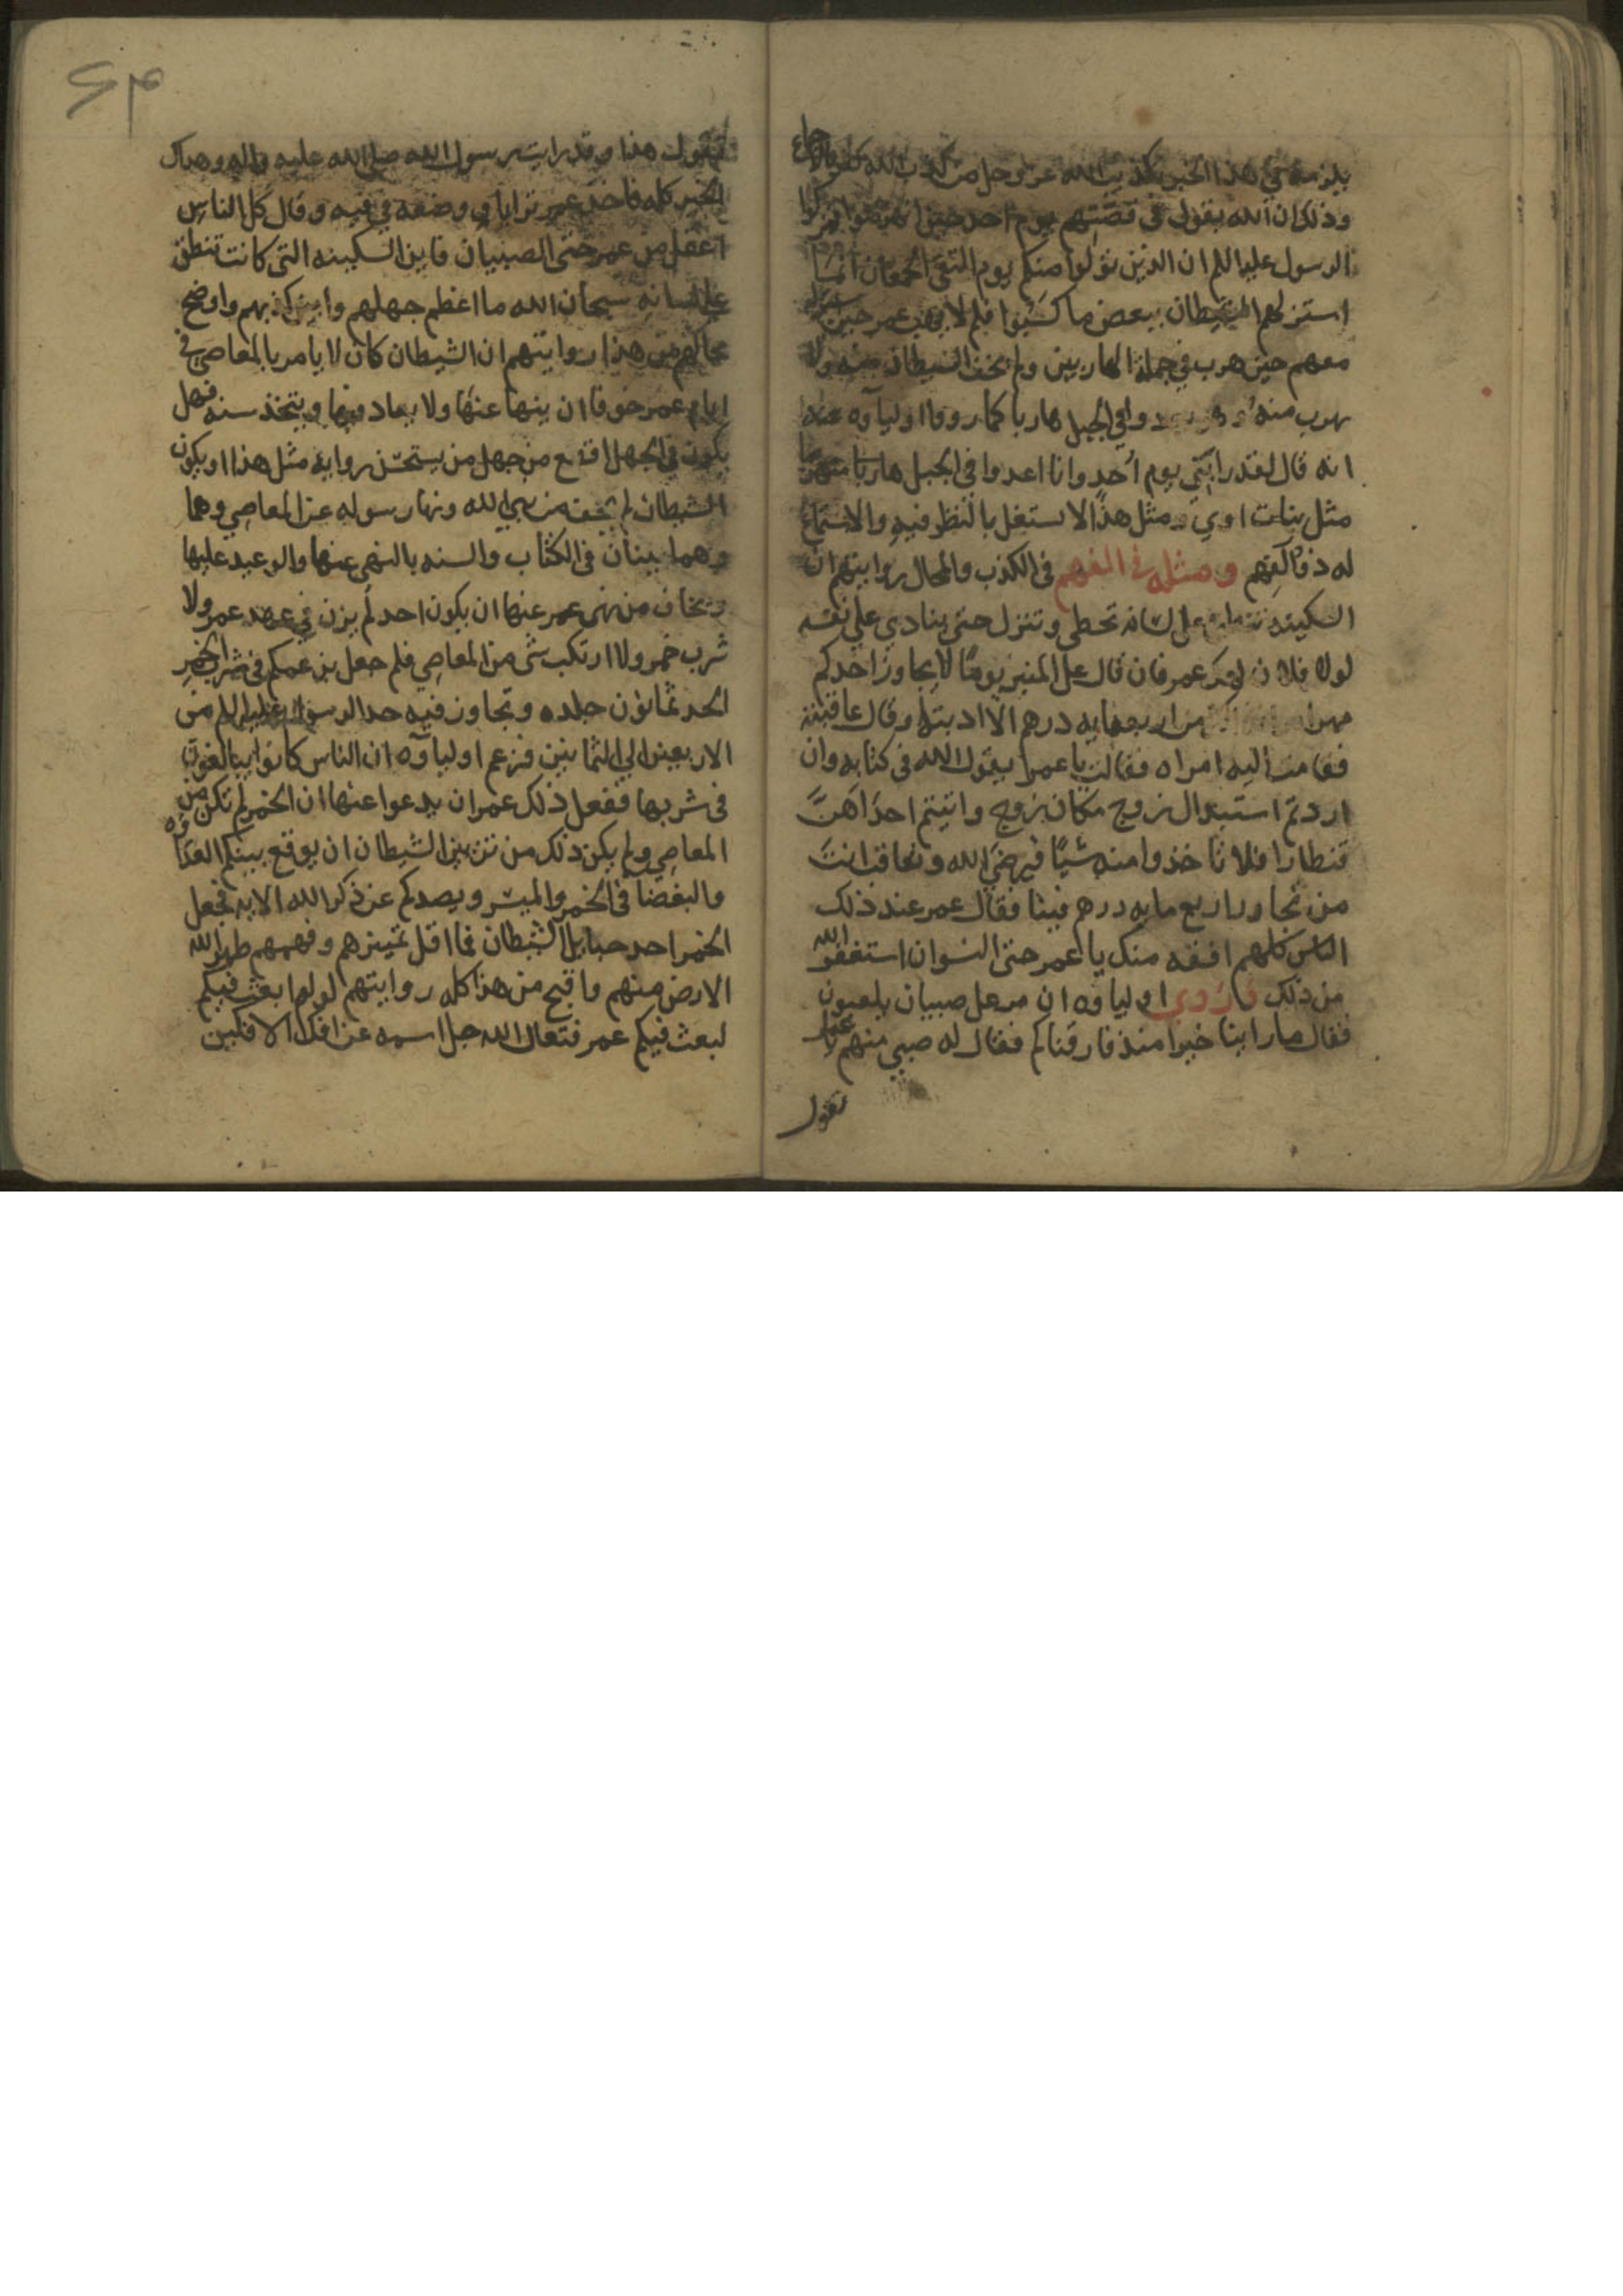 يلزمه في هذا الخبر تكذيب الله عز وجل من كذب الله
وذلك ان الله يقول في قصتهم يوم احد حين انهزموا
الرسول عليه اللم ان الذين تولوا منكم يوم التقى الجمعان انما
استزلهم الشيطان ببعض ما كسبوا فلم عمر حين
معهم حين هرب في جملة الهاربين ولم يخف الشيطان منه ولا
يهرب منه في الجبل هاربا كما رووا اولياوه عنه
انه قال لقد رايتي يوم احد وانا اعدوا في الجبل هاربا منهزما
مثل بنات اوي ومثل هذا لا يستغل بالنظر فيه والاستماع
له ذو الفهم ومثله في الكذب والمحال روايتهم ان
السكينه على لسانه تخطى وتنزل حتى ينادي على نفسه
لولا فلان لهلك عمر فان قال على المنبر يوما لا يجاوز احدكم
اربعمايه درهم الا ادبته وقال عاقبته
فقامت اليه امراه فقالت يا عمر ايقول الله في كتابه وان
اردتم استبدال زوج مكان زوج واتيتم احداهن
قنطارا فلا تاخذوا منه شيا فيرضى الله وتعاقب انت
من تجاوز اربع مايه درهم فينا فقال عمر عند ذلك
الناس كلهم افقه منك يا عمر حتى النسوان استغفر الله
من ذلك وروي اولياوه ان مر على صبيان يلعبون
فقال ما راينا خيرا منذ فارقناكم فقال له صبي منهم يا عمر
تقول
۶۳
تقول هذا وقد رايت رسول الله صلى الله عليه واله وهداك
الخير كله فاخذ عمر ترابا ووضعه في فيه وقال كل الناس
اعقل من عمر حتى الصبيان فاين السكينه التي كانت تنطق
على لسانه سبحان الله ما اعظم جهلهم وابين كذبهم واوضح
محالهم من هذا روايتهم ان الشيطان كان لا يامر بالمعاصي في
ايام عمر خوفا ان ينها عنها ولا يعاد فيها ويتخذ سنه فهل
يكون في الجهل اقذع من جهل من يستحسن روايه مثل هذا او يكون
الشيطان لم يخف من نهي الله ونها رسوله عن المعاصي وهما
وهما بينان في الكتاب والسنه بالنهي عنها والوعيد عليها
ويخاف من نهى عمر عنها ان يكون احد لم يزن في عهد عمر ولا
شرب خمر ولا ارتكب شى من المعاصي فلم جعل بزعمكم في شرب الخمر
الحد ثمانون جلده وتجاوز فيه حد الرسول عليه اللم من
الاربعين الى الثمانين فزعم اولياوه ان الناس كانوا يبالغون
في شربها ففعل ذلك عمر ان يدعوا عنها ان الخمر لم تكن من
المعاصي ولم يكن ذلك من تزيين الشيطان ان يوقع بينكم العداوه
والبغضا في الخمر والميسر ويصدكم عن ذكر الله الايه فجعل
الخمر احد حبايل الشيطان فما اقل تمييزهم وفهمهم طهر الله
الارض منهم واقبح من هذا كله روايتهم لو لم ابعث فيكم
لبعث فيكم عمر فتعالى الله جل اسمه عن افك الافكين